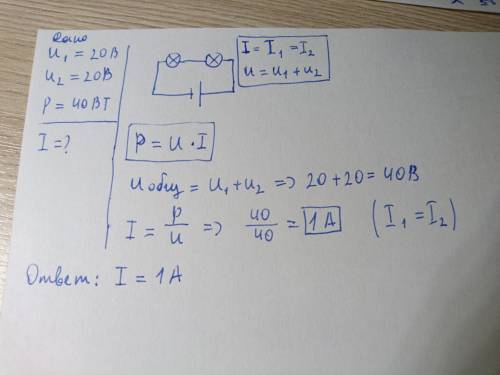 Дано
U₁ = 20В
U₂ = 20В
P = 40ВТ
I = ?
I = I₁ = I₂
U = U₁ + U₂
P = U · I
U общ = U₁ + U₂ => 20 + 20 = 40В
I = P/U => 40/40 = 1А (I₁ = I₂)
Ответ: I = 1А